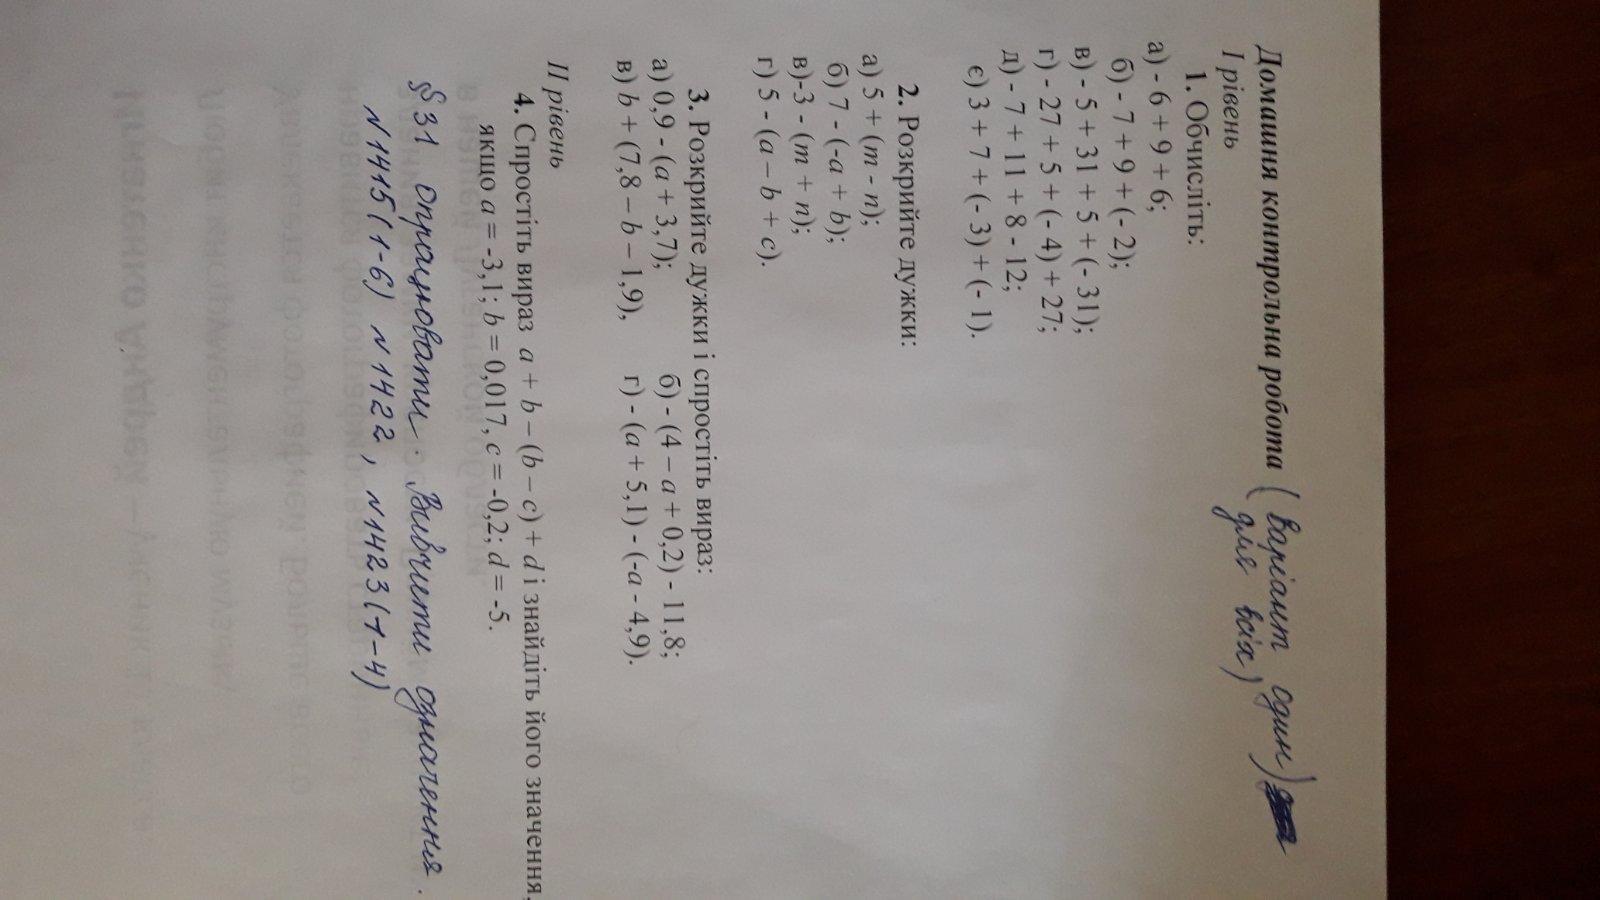 Домашня контрольна робота (Варіант один)
для всіх)
I рівень
1. Обчисліть:
а) - 6 + 9 + 6;
б) - 7 + 9 + (- 2);
в) - 5 + 31 + 5 + (- 31);
г) - 27 + 5 + (- 4) + 27;
д) - 7 + 11 + 8 - 12;
є) 3 + 7 + (- 3) + (- 1).
2. Розкрийте дужки:
а) 5 + (m - n);
б) 7 - (-a + b);
в)-3 - (m + n);
г) 5 - (a – b + c).
3. Розкрийте дужки і спростіть вираз:
а) 0,9 - (a + 3,7); б) - (4 – a + 0,2) - 11,8;
в) b + (7,8 – b – 1,9), г) - (a + 5,1) - (-a - 4,9).
II рівень
4. Спростіть вираз a + b – (b – c) + d і знайдіть його значення,
якщо a = -3,1; b = 0,017, c = -0,2; d = -5.
§ 31 опрацювати. Вивчити означення.
N 1415(1-6) N 1422, N 1423(1-4)